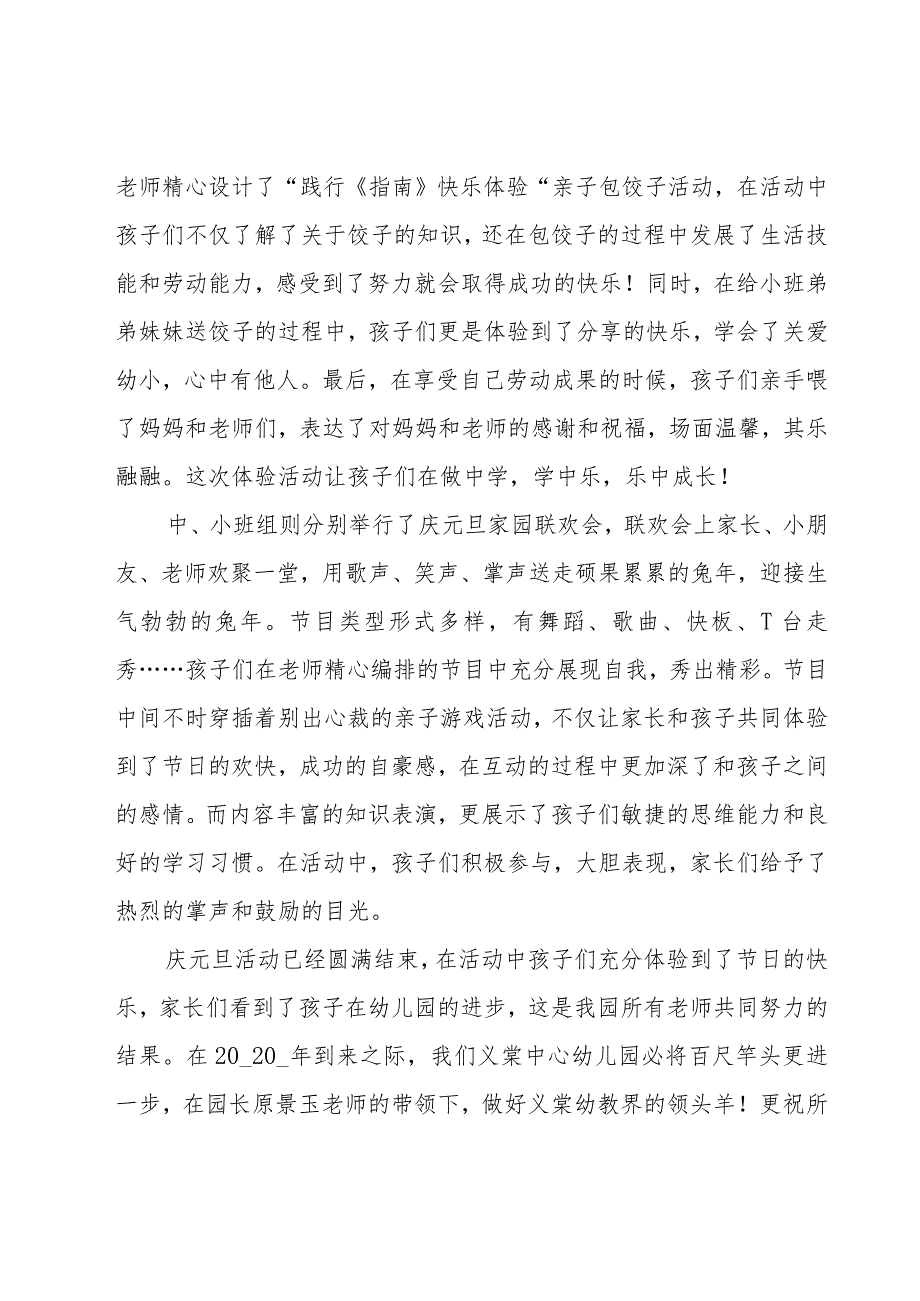 老师精心设计了“践行《指南》快乐体验“亲子包饺子活动，在活动中
孩子们不仅了解了关于饺子的知识，还在包饺子的过程中发展了生活技
能和劳动能力，感受到了努力就会取得成功的快乐！同时，在给小班弟
弟妹妹送饺子的过程中，孩子们更是体验到了分享的快乐，学会了关爱
幼小，心中有他人。最后，在享受自己劳动成果的时候，孩子们亲手喂
了妈妈和老师们，表达了对妈妈和老师的感谢和祝福，场面温馨，其乐
融融。这次体验活动让孩子们在做中学，学中乐，乐中成长！
中、小班组则分别举行了庆元旦家园联欢会，联欢会上家长、小朋
友、老师欢聚一堂，用歌声、笑声、掌声送走硕果累累的兔年，迎接生
气勃勃的兔年。节目类型形式多样，有舞蹈、歌曲、快板、T台走
秀……孩子们在老师精心编排的节目中充分展现自我，秀出精彩。节目
中间不时穿插着别出心裁的亲子游戏活动，不仅让家长和孩子共同体验
到了节日的欢快，成功的自豪感，在互动的过程中更加深了和孩子之间
的感情。而内容丰富的知识表演，更展示了孩子们敏捷的思维能力和良
好的学习习惯。在活动中，孩子们积极参与，大胆表现，家长们给予了
热烈的掌声和鼓励的目光。
庆元旦活动已经圆满结束，在活动中孩子们充分体验到了节日的快
乐，家长们看到了孩子在幼儿园的进步，这是我园所有老师共同努力的
结果。在 20_20_年到来之际，我们义棠中心幼儿园必将百尺竿头更进
一步，在园长原景玉老师的带领下，做好义棠幼教界的领头羊！更祝所